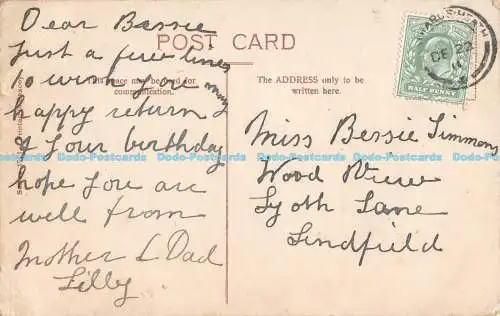 Dear Bessie
Just a few lines
to wish you
many
happy return
of your birthday
hope you are
well from
Mother & Dad
Lilly
POST CARD
This space may be used for
communication.
The ADDRESS only to be
written here.
HALF PENNY
WARDS HEATH
DE 22
Miss Bessie Simmons
Wood View
Lyoth Lane
Lindfield
Dodo-Postcards Dodo-Postcards Dodo-Postcards Dodo-Postcards Dodo-Postcards